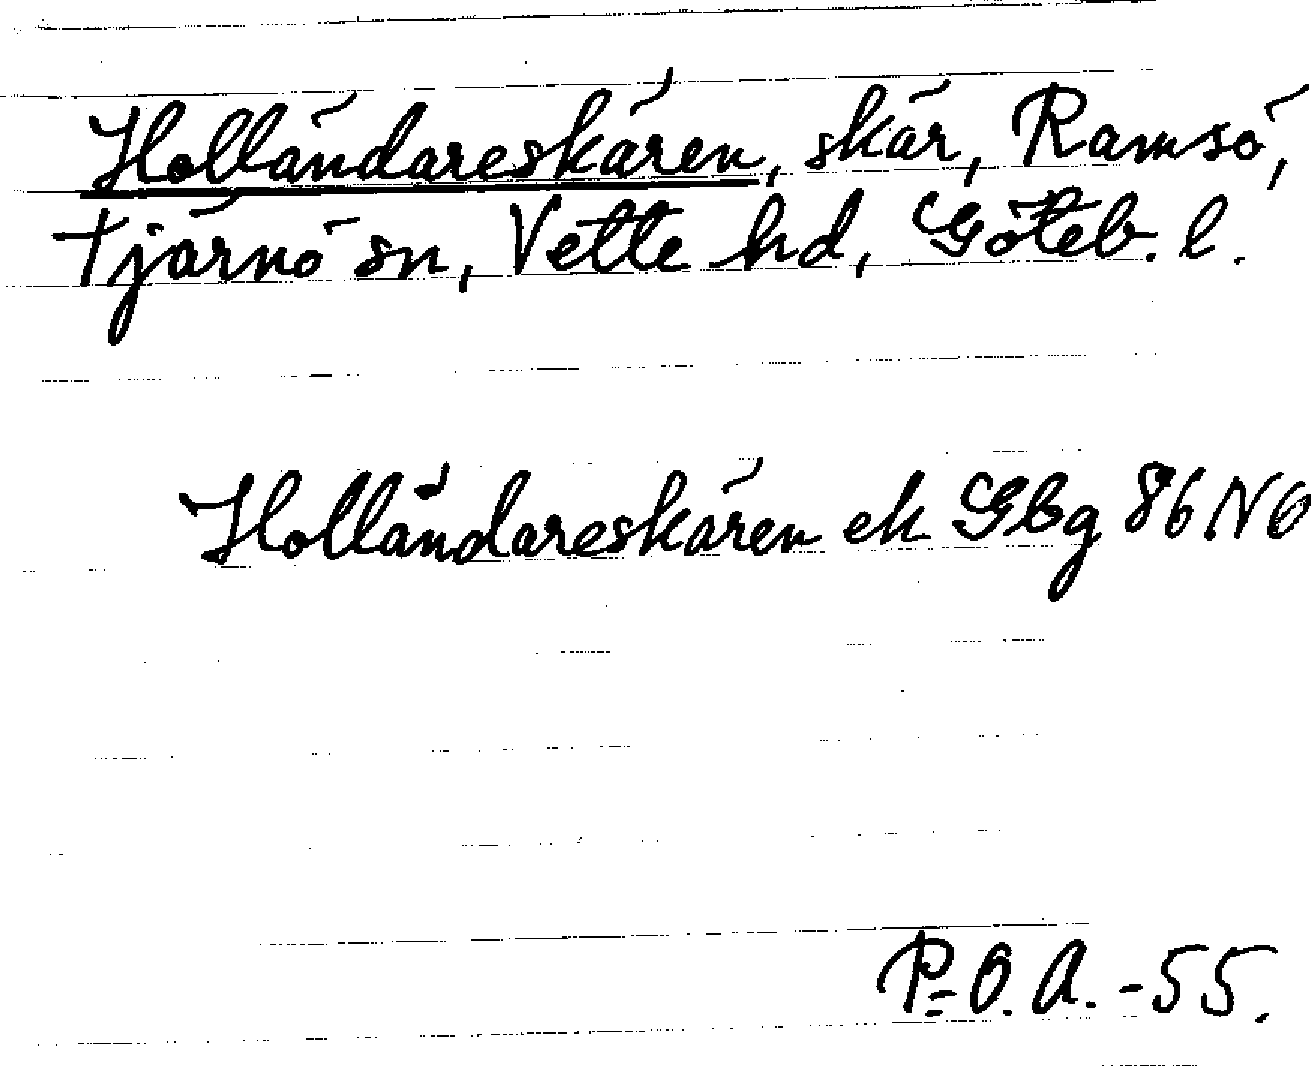 Holländareskären, skär, Ramsö,
Tjärnö sn, Vette hd, Göteb. l.
Holländareskären ek Gbg 86 NO
P-O. A. -55.